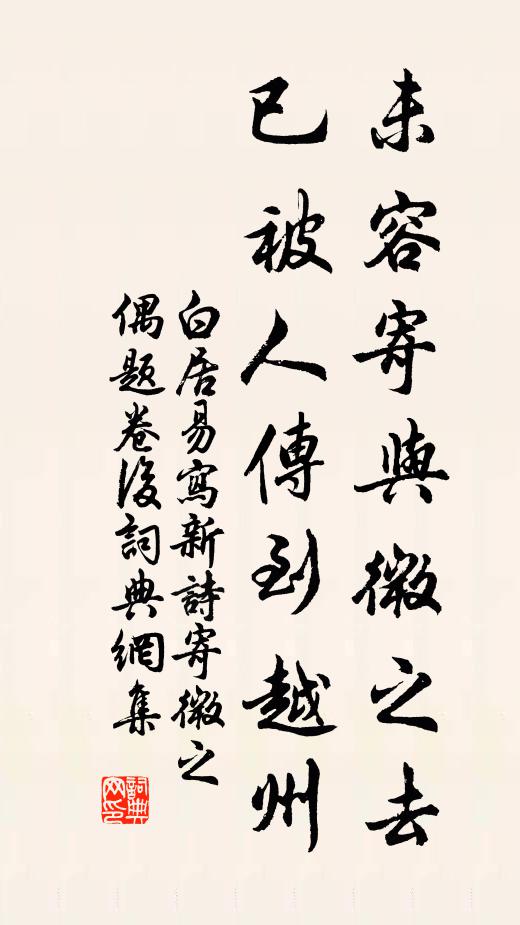 未容寄與微之去
已被人傳到越州
白居易寫新詩寄微之
偶題卷後詞典網集
詞典
网印